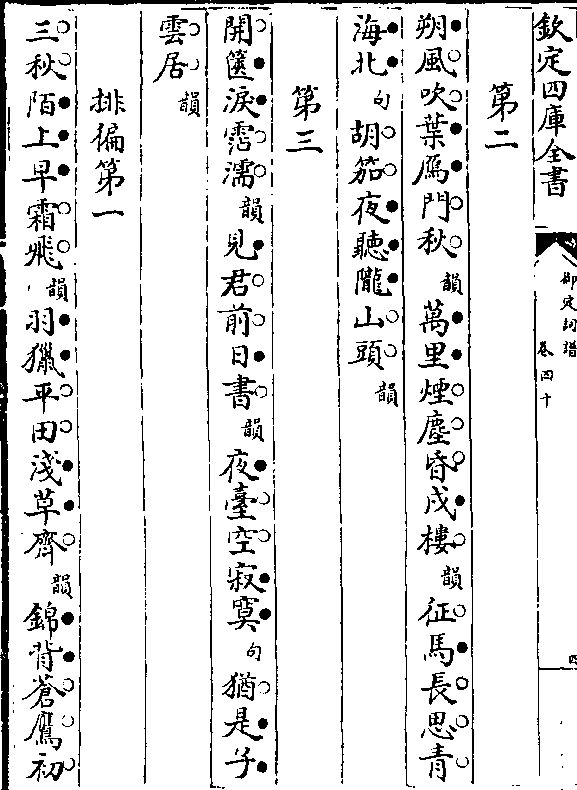 欽定四庫全書
御定詞譜
卷四十
四
第二
朔風吹葉鴈門秋韻萬里煙塵昏戍樓韻征馬長思青
海北句胡笳夜聽隴山頭韻
第三
開篋淚霑濡韻見君前日書韻夜臺空寂寞句猶是子
雲居韻
排徧第一
三秋陌上早霜飛韻羽獵平田淺草齊韻錦背蒼鷹初